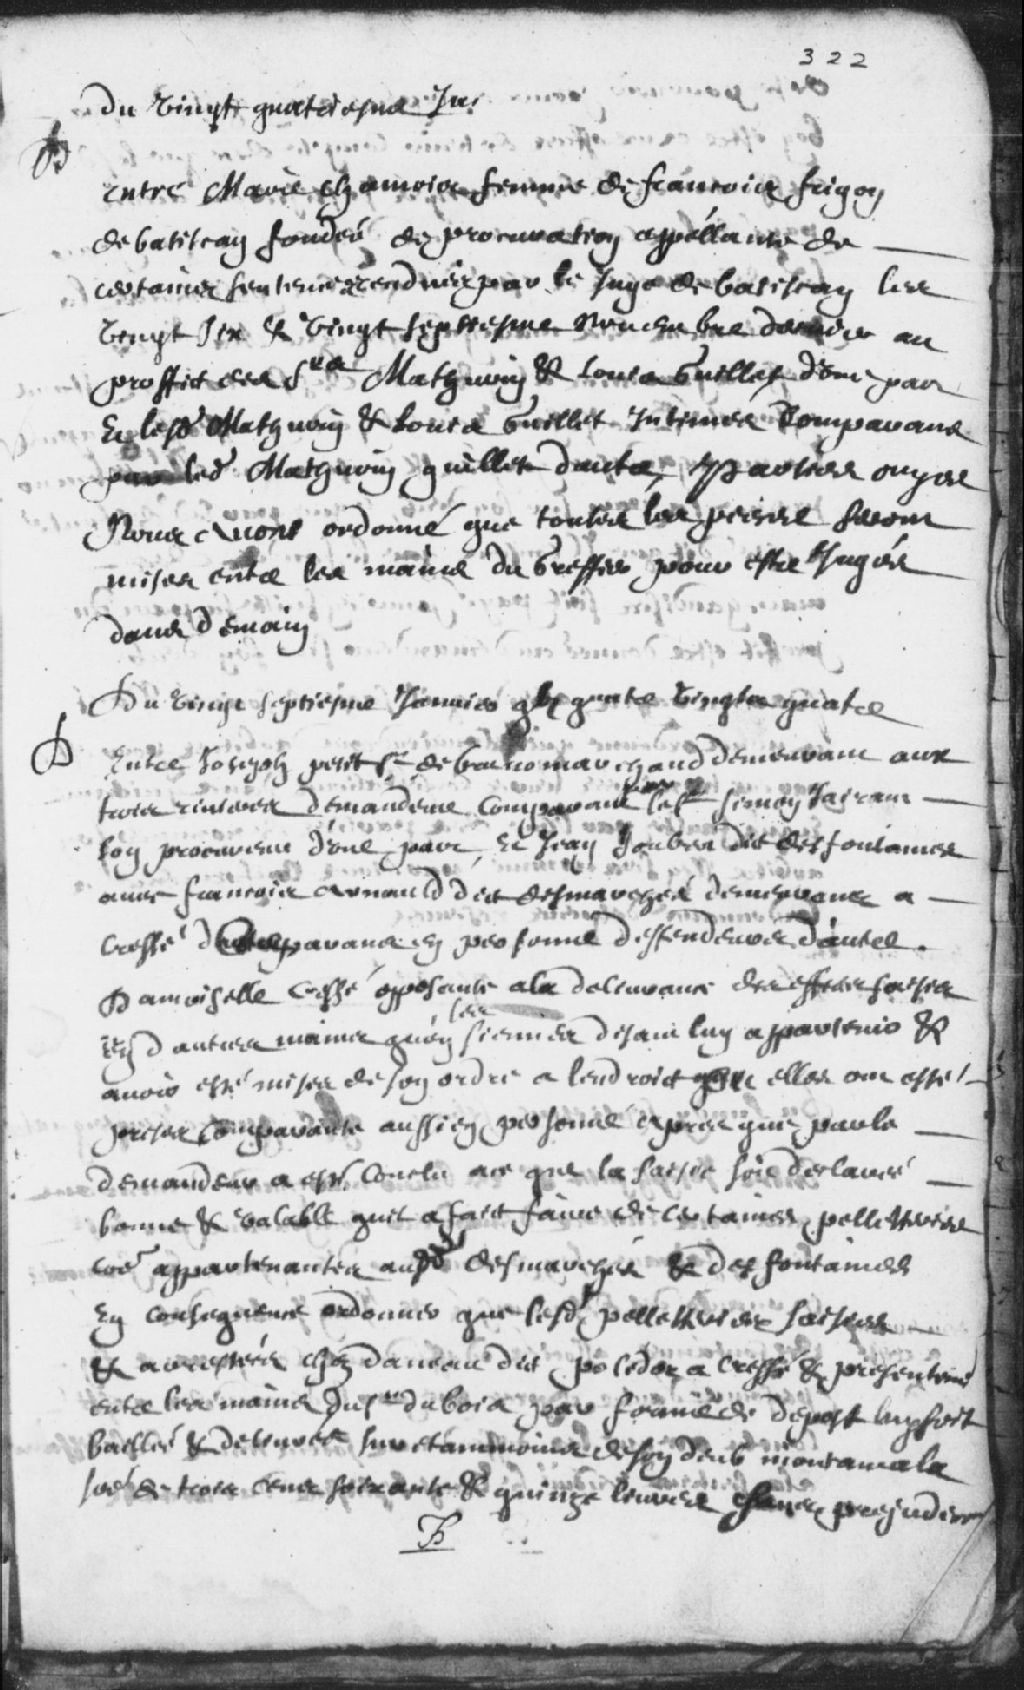 322
Du vingt quatriesme Jer
Entre Marie chamois femme de francois frigon
de batiscan fondée de procuration appellante de
certaines sentences rendues par le Juge de batiscan les
vingt six & vingt septiesme Novembre dernier au
proffit des Srs Mathurin & Louis Guillet d'une part
Et lesd Mathurin & Louis Guillet Intimés Comparans
par led Mathurin guillet dautre, Parties ouyes
Nous avons ordonné que toutes les pieces seront
mises entre les mains du Greffier pour estre Jugées
dans demain
Du vingt septiesme Janvier gbic quatre vingts quatre
Entre Joseph petit Sr de bruno marchand demeurant aux
trois rivieres demandeur Comparant par le Sr simon Jairain
son procureur d'une part, Et Jean Joubert dit desfontaines
avec francois Arnauld dit desmarchés demeurans a
Cressé Comparans en personne deffendeurs d'autre.
Damoiselle Cressé opposante a la delivrance des effets saisies
En d autres mains quen les siennes disant luy appartenir &
avoir esté mises de son ordre a lendroict elles ont esté
prises Comparante aussi en personne apres que par le
demandeur a esté Conclu ace que la saisie soit declarée
bonne & valable quil a fait faire de certaines pelletteries
cod appartenantes ausd desmarchés & desfontaines
En consequence ordonner que lesd pelletteries saisies
& arrestées chez daneau dit polidor a Cressé & presentemt
entre les mains du Sr dubois par forme de depost luy soit
baillés & delivrés sur etammoins de son deub montant a la
soe de trois cens soixante & quinze livres sans prejudice